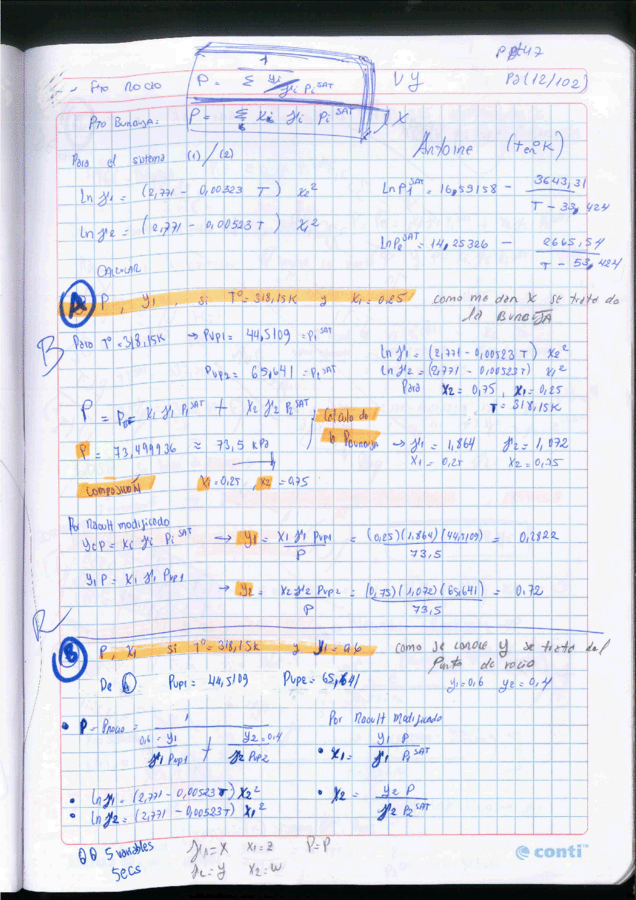 Ppt 47
Pto Rocio P = 1 / Σ yi / γi Pi SAT V y Pg (12/102)
Pto Burbuja: P = Σ xi γi Pi SAT X
Antoine (T en °K)
Para el sistema (1) / (2)
Ln γ1 = (2,771 - 0,00523 T) x2²
Ln P1 SAT = 16,59158 - 3643,31 / T - 33,424
Ln γ2 = (2,771 - 0,00523 T) x1²
Ln P2 SAT = 14,25326 - 2665,54 / T - 53,424
CALCULAR
A P, y1, si T° = 318,15K y x1 = 0,25 como me dan X se trata de la BURBUJA
B Para T° = 318,15K → Pvp1 = 44,5109 = P1 SAT
Pvp2 = 65,641 = P2 SAT
Ln γ1 = (2,771 - 0,00523 T) x2²
Ln γ2 = (2,771 - 0,00523 T) x1²
Para x2 = 0,75, x1 = 0,25
T = 318,15K
P = PB = x1 γ1 P1 SAT + x2 γ2 P2 SAT
Calculo de la P burbuja
P = 73,499936 ≈ 73,5 kPa
→ γ1 = 1,864 γ2 = 1,072
x1 = 0,25 x2 = 0,75
COMPOSICIÓN x1 = 0,25, x2 = 0,75
Por Raoult modificado
yi P = xi γi Pi SAT → y1 = x1 γ1 Pvp1 / P = (0,25)(1,864)(44,5109) / 73,5 = 0,2822
y1 P = x1 γ1 Pvp1
→ y2 = x2 γ2 Pvp2 / P = (0,75)(1,072)(65,641) / 73,5 = 0,72
R
B P, x1 si T° = 318,15K y y1 = 0,6 como se conoce y se trata del Punto de rocio
De A Pvp1 = 44,5109 Pvp2 = 65,641 y1 = 0,6 y2 = 0,4
• P = Procio = 1 / 0,6 = y1 / γ1 Pvp1 + y2 = 0,4 / γ2 Pvp2
Por Raoult Modificado
• x1 = y1 P / γ1 P1 SAT
• Ln γ1 = (2,771 - 0,00523 T) x2²
• Ln γ2 = (2,771 - 0,00523 T) x1²
• x2 = y2 P / γ2 P2 SAT
5 variables γ1 = X x1 = z P = P
5 ecs γ2 = y x2 = w
conti™